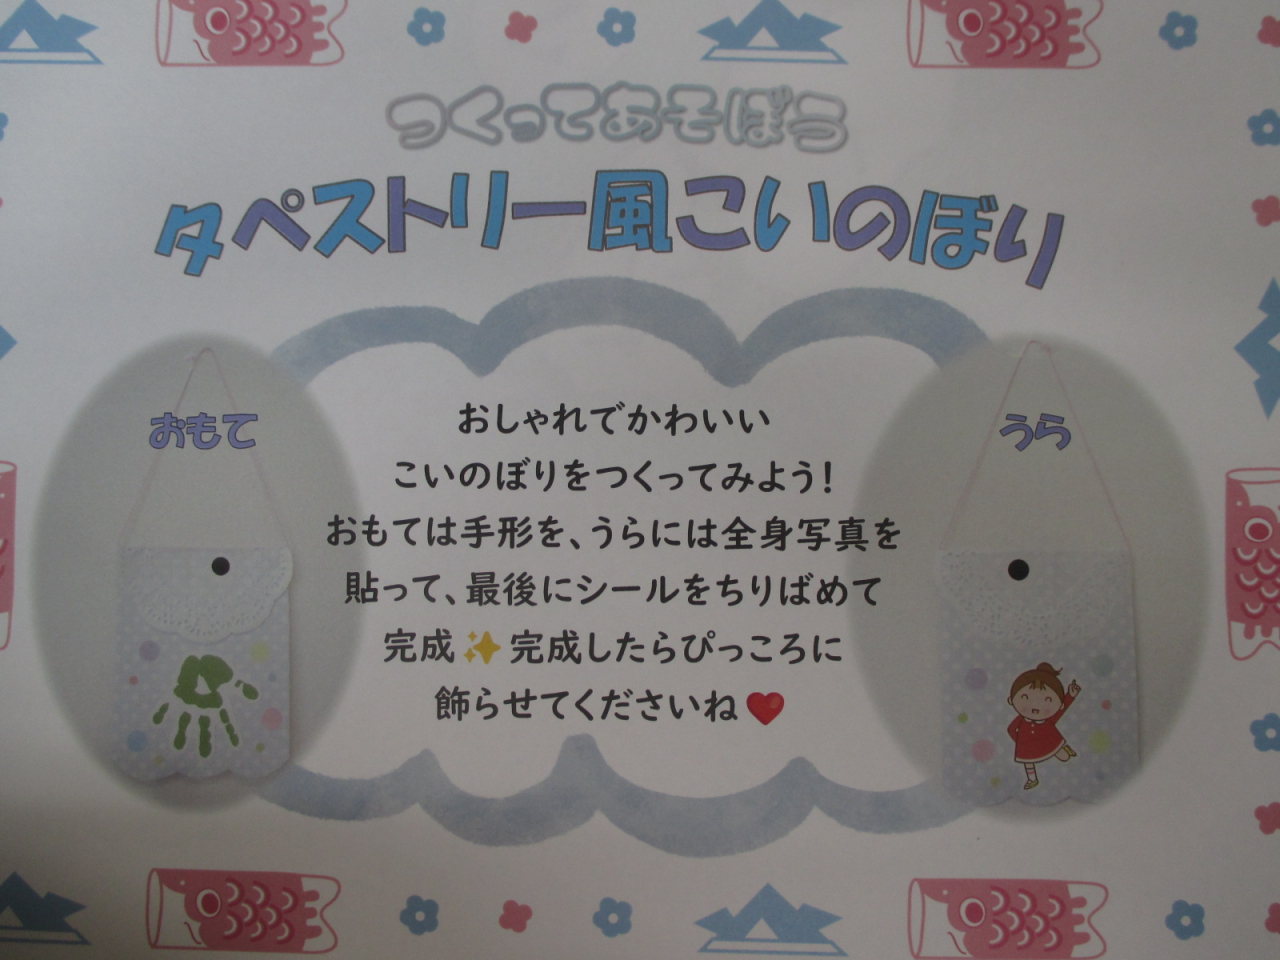 つくってあそぼう
タペストリー風こいのぼり
おもて
うら
おしゃれでかわいい
こいのぼりをつくってみよう!
おもては手形を、うらには全身写真を
貼って、最後にシールをちりばめて
完成✨完成したらぴっころに
飾らせてくださいね❤